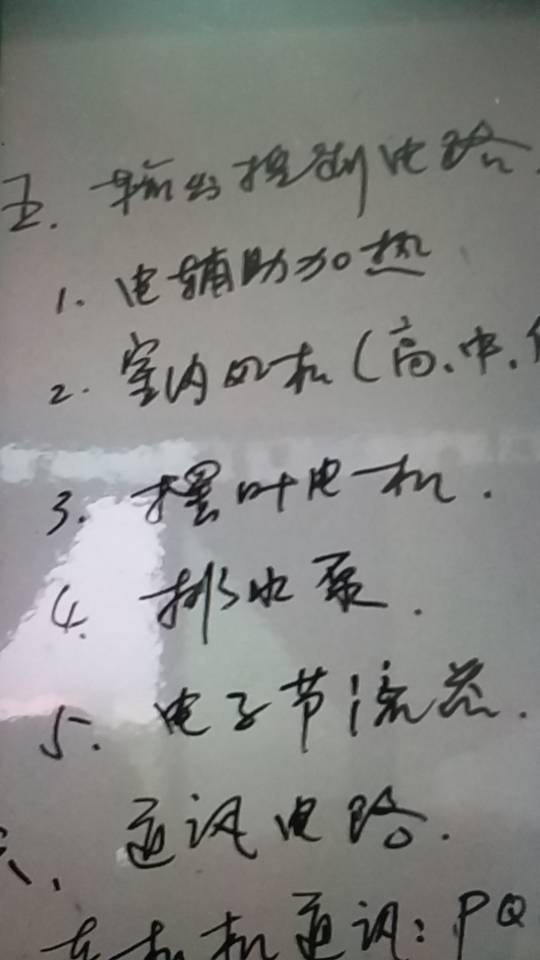 五. 输出控制电路.
1. 电辅助加热
2. 室内风机(高.中.
3. 摆叶电机.
4. 排水泵.
5. 电子节流器.
六、通讯电路.
机通讯: PQ